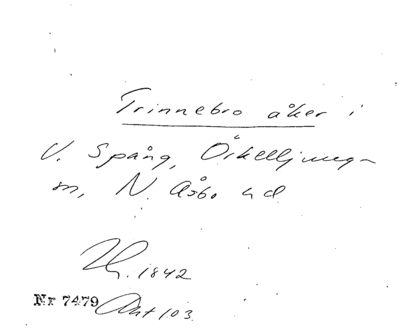 Trinnebro åker i
V. Spång, Örkelljunga
N. Åsbo hd
1842
Nr 7479 Akt 103